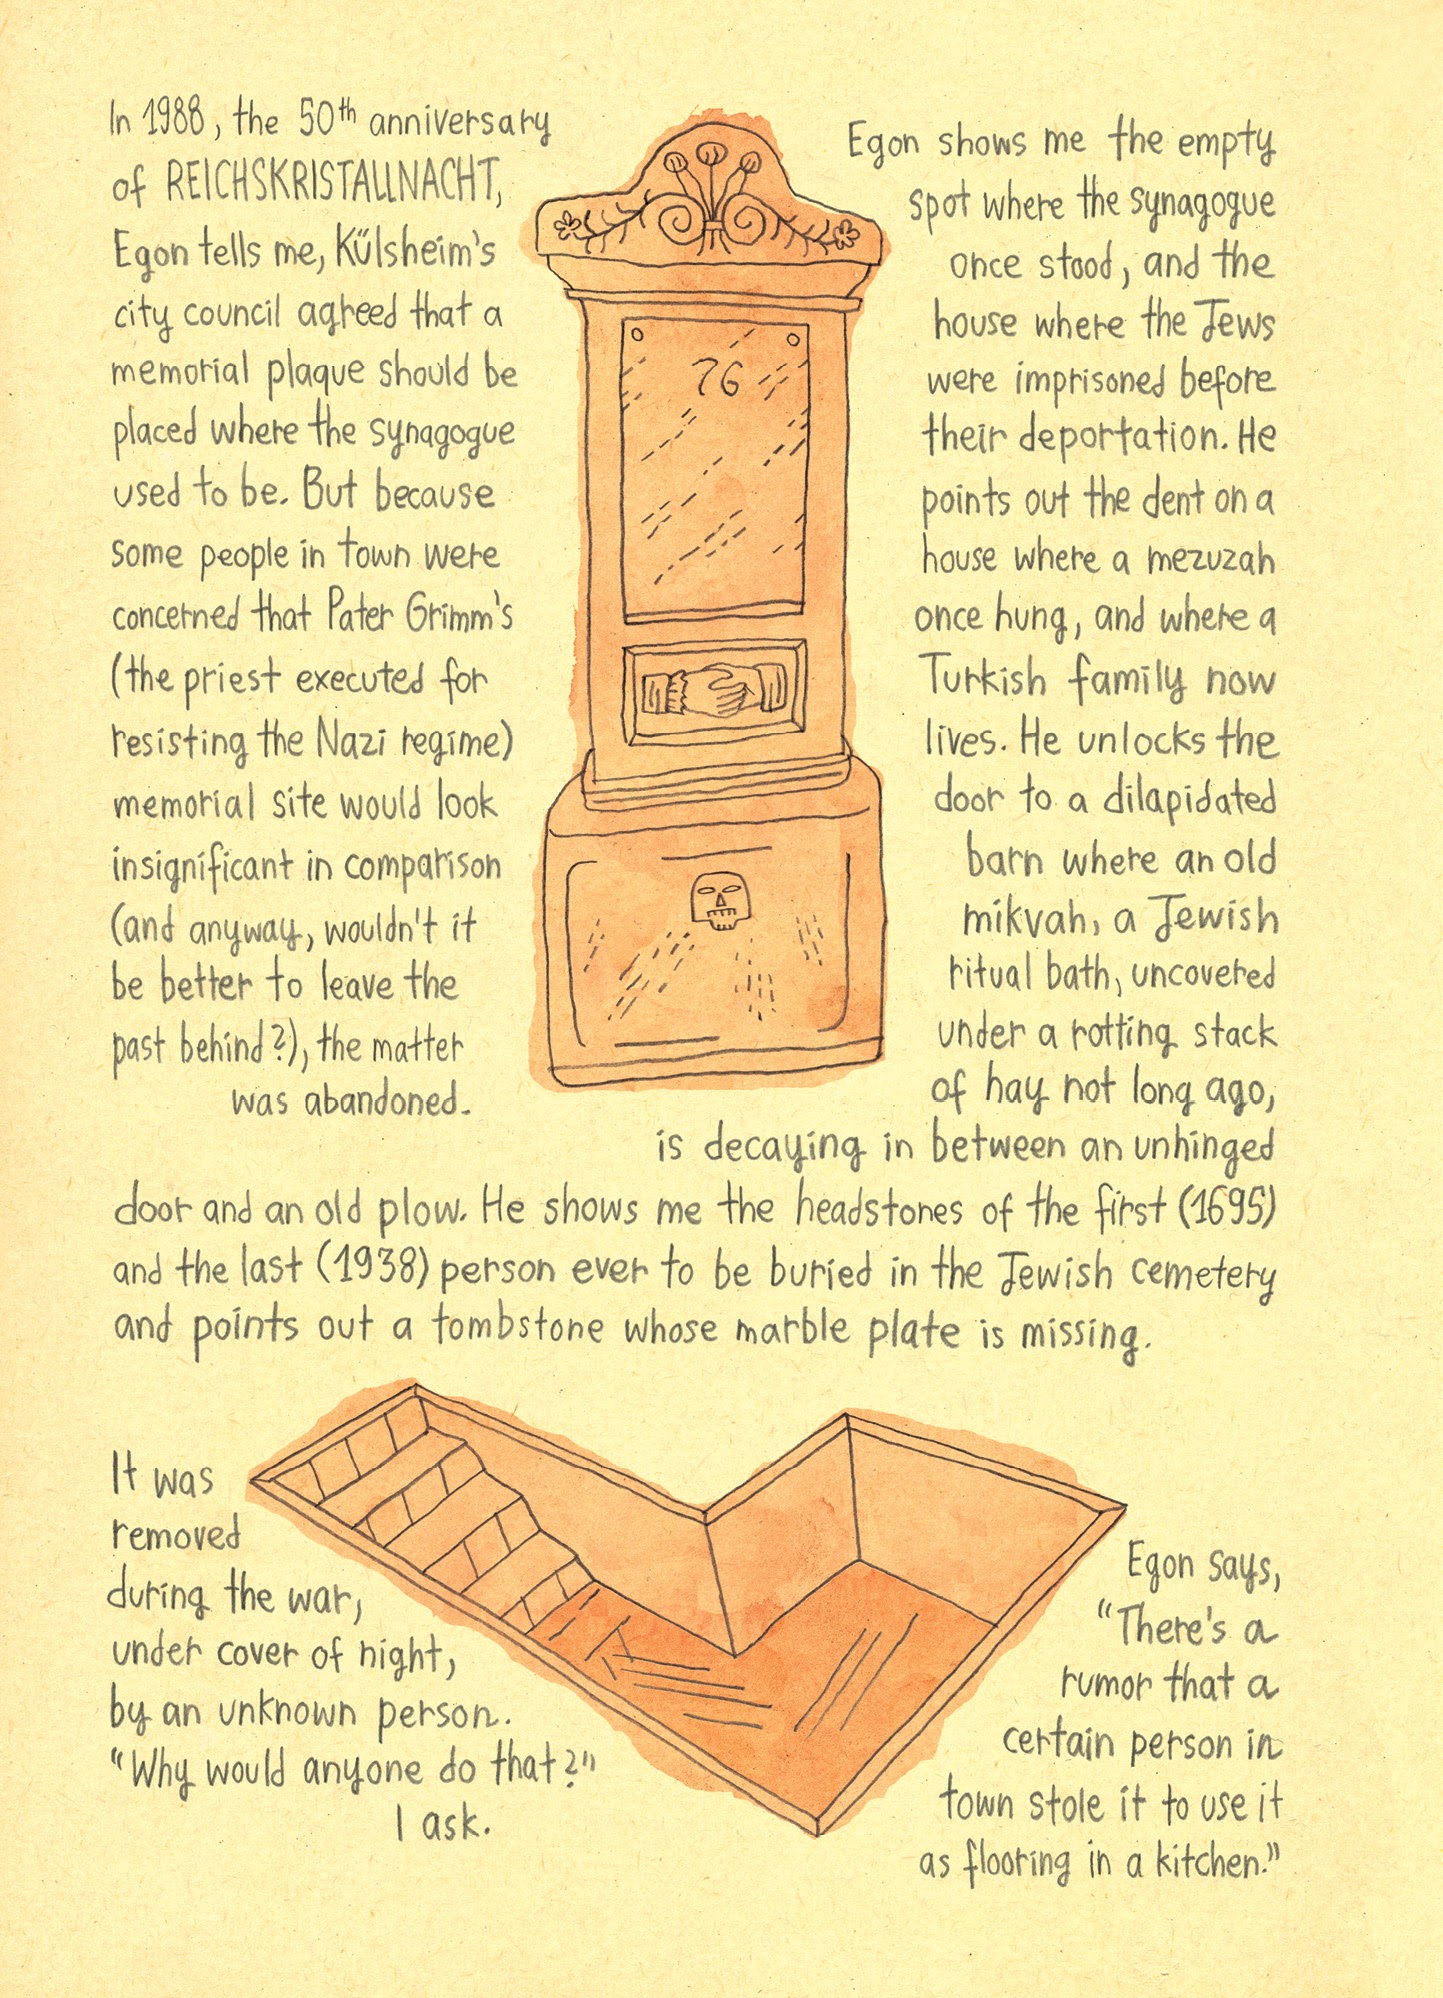 In 1988, the 50th anniversary
of REICHSKRISTALLNACHT,
Egon tells me, Külsheim's
city council agreed that a
memorial plaque should be
placed where the synagogue
used to be. But because
some people in town were
concerned that Pater Grimm's
(the priest executed for
resisting the Nazi regime)
memorial site would look
insignificant in comparison
(and anyway, wouldn't it
be better to leave the
past behind?), the matter
was abandoned.
76
Egon shows me the empty
spot where the synagogue
once stood, and the
house where the Jews
were imprisoned before
their deportation. He
points out the dent on a
house where a mezuzah
once hung, and where a
Turkish family now
lives. He unlocks the
door to a dilapidated
barn where an old
mikvah, a Jewish
ritual bath, uncovered
under a rotting stack
of hay not long ago,
is decaying in between an unhinged
door and an old plow. He shows me the headstones of the first (1695)
and the last (1938) person ever to be buried in the Jewish cemetery
and points out a tombstone whose marble plate is missing.
It was
removed
during the war,
under cover of night,
by an unknown person.
"Why would anyone do that?"
I ask.
Egon says,
"There's a
rumor that a
certain person in
town stole it to use it
as flooring in a kitchen."